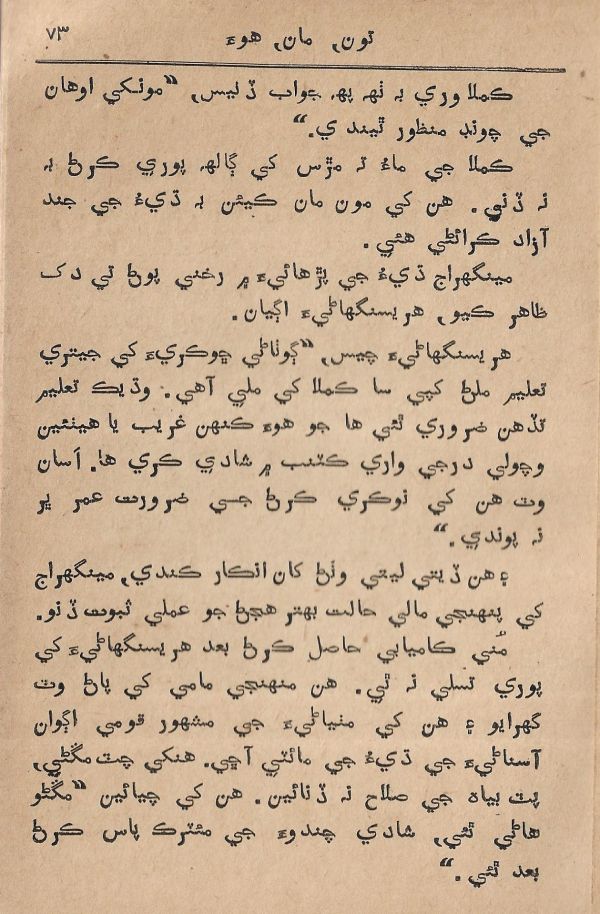 تون, مان, هوءَ ۷۳
ڪملا وري بہ ٺهہ پهہ جواب ڏنس, “مونکي اوهان
جي چونڊ منظور ٿيندي.“
ڪملا جي ماءُ تہ مڙس کي ڳالهہ پوري ڪرڻ بہ
نہ ڏني. هن کي مون مان ڪيئن بہ ڌيءُ جي جند
آزاد ڪرائڻي هئي.
مينگهراج ڌيءُ جي پڙهائيءَ ۾ رخني پوڻ تي دک
ظاهر ڪيو, هريسنگهاڻيءَ اڳيان.
هريسنگهاڻيءَ چيس, “ڳوٺاڻي ڇوڪريءَ کي جيتري
تعليم ملڻ کپي سا ڪملا کي ملي آهي. وڌيڪ تعليم
تڏهن ضروري ٿئي ها جو هوءَ ڪنهن غريب يا هيٺئين
وچولي درجي واري ڪٽنب ۾ شادي ڪري ها. اسان
وٽ هن کي نوڪري ڪرڻ جي ضرورت عمر ڀر
نہ پوندي.“
۽ هن ڏيتي ليتي وٺڻ کان انڪار ڪندي, مينگهراج
کي پنهنجي مالي حالت بهتر هجڻ جو عملي ثبوت ڏنو.
مُني ڪاميابي حاصل ڪرڻ بعد هريسنگهاڻيءَ کي
پوري تسلي نہ ٿي. هن منهنجي مامي کي پاڻ وٽ
گهرايو ۽ هن کي مٺياڻيءَ جي مشهور قومي اڳواڻ
آسناڻيءَ جي ڌيءُ جي مائٽي آڇي. هنکي چٽ مڱڻي,
پٽ بياهہ جي صلاح نہ ڏنائين. هن کي چيائين “مڱڻو
هاڻي ٿئي, شادي چندوءَ جي مئٽرڪ پاس ڪرڻ
بعد ٿئي.“